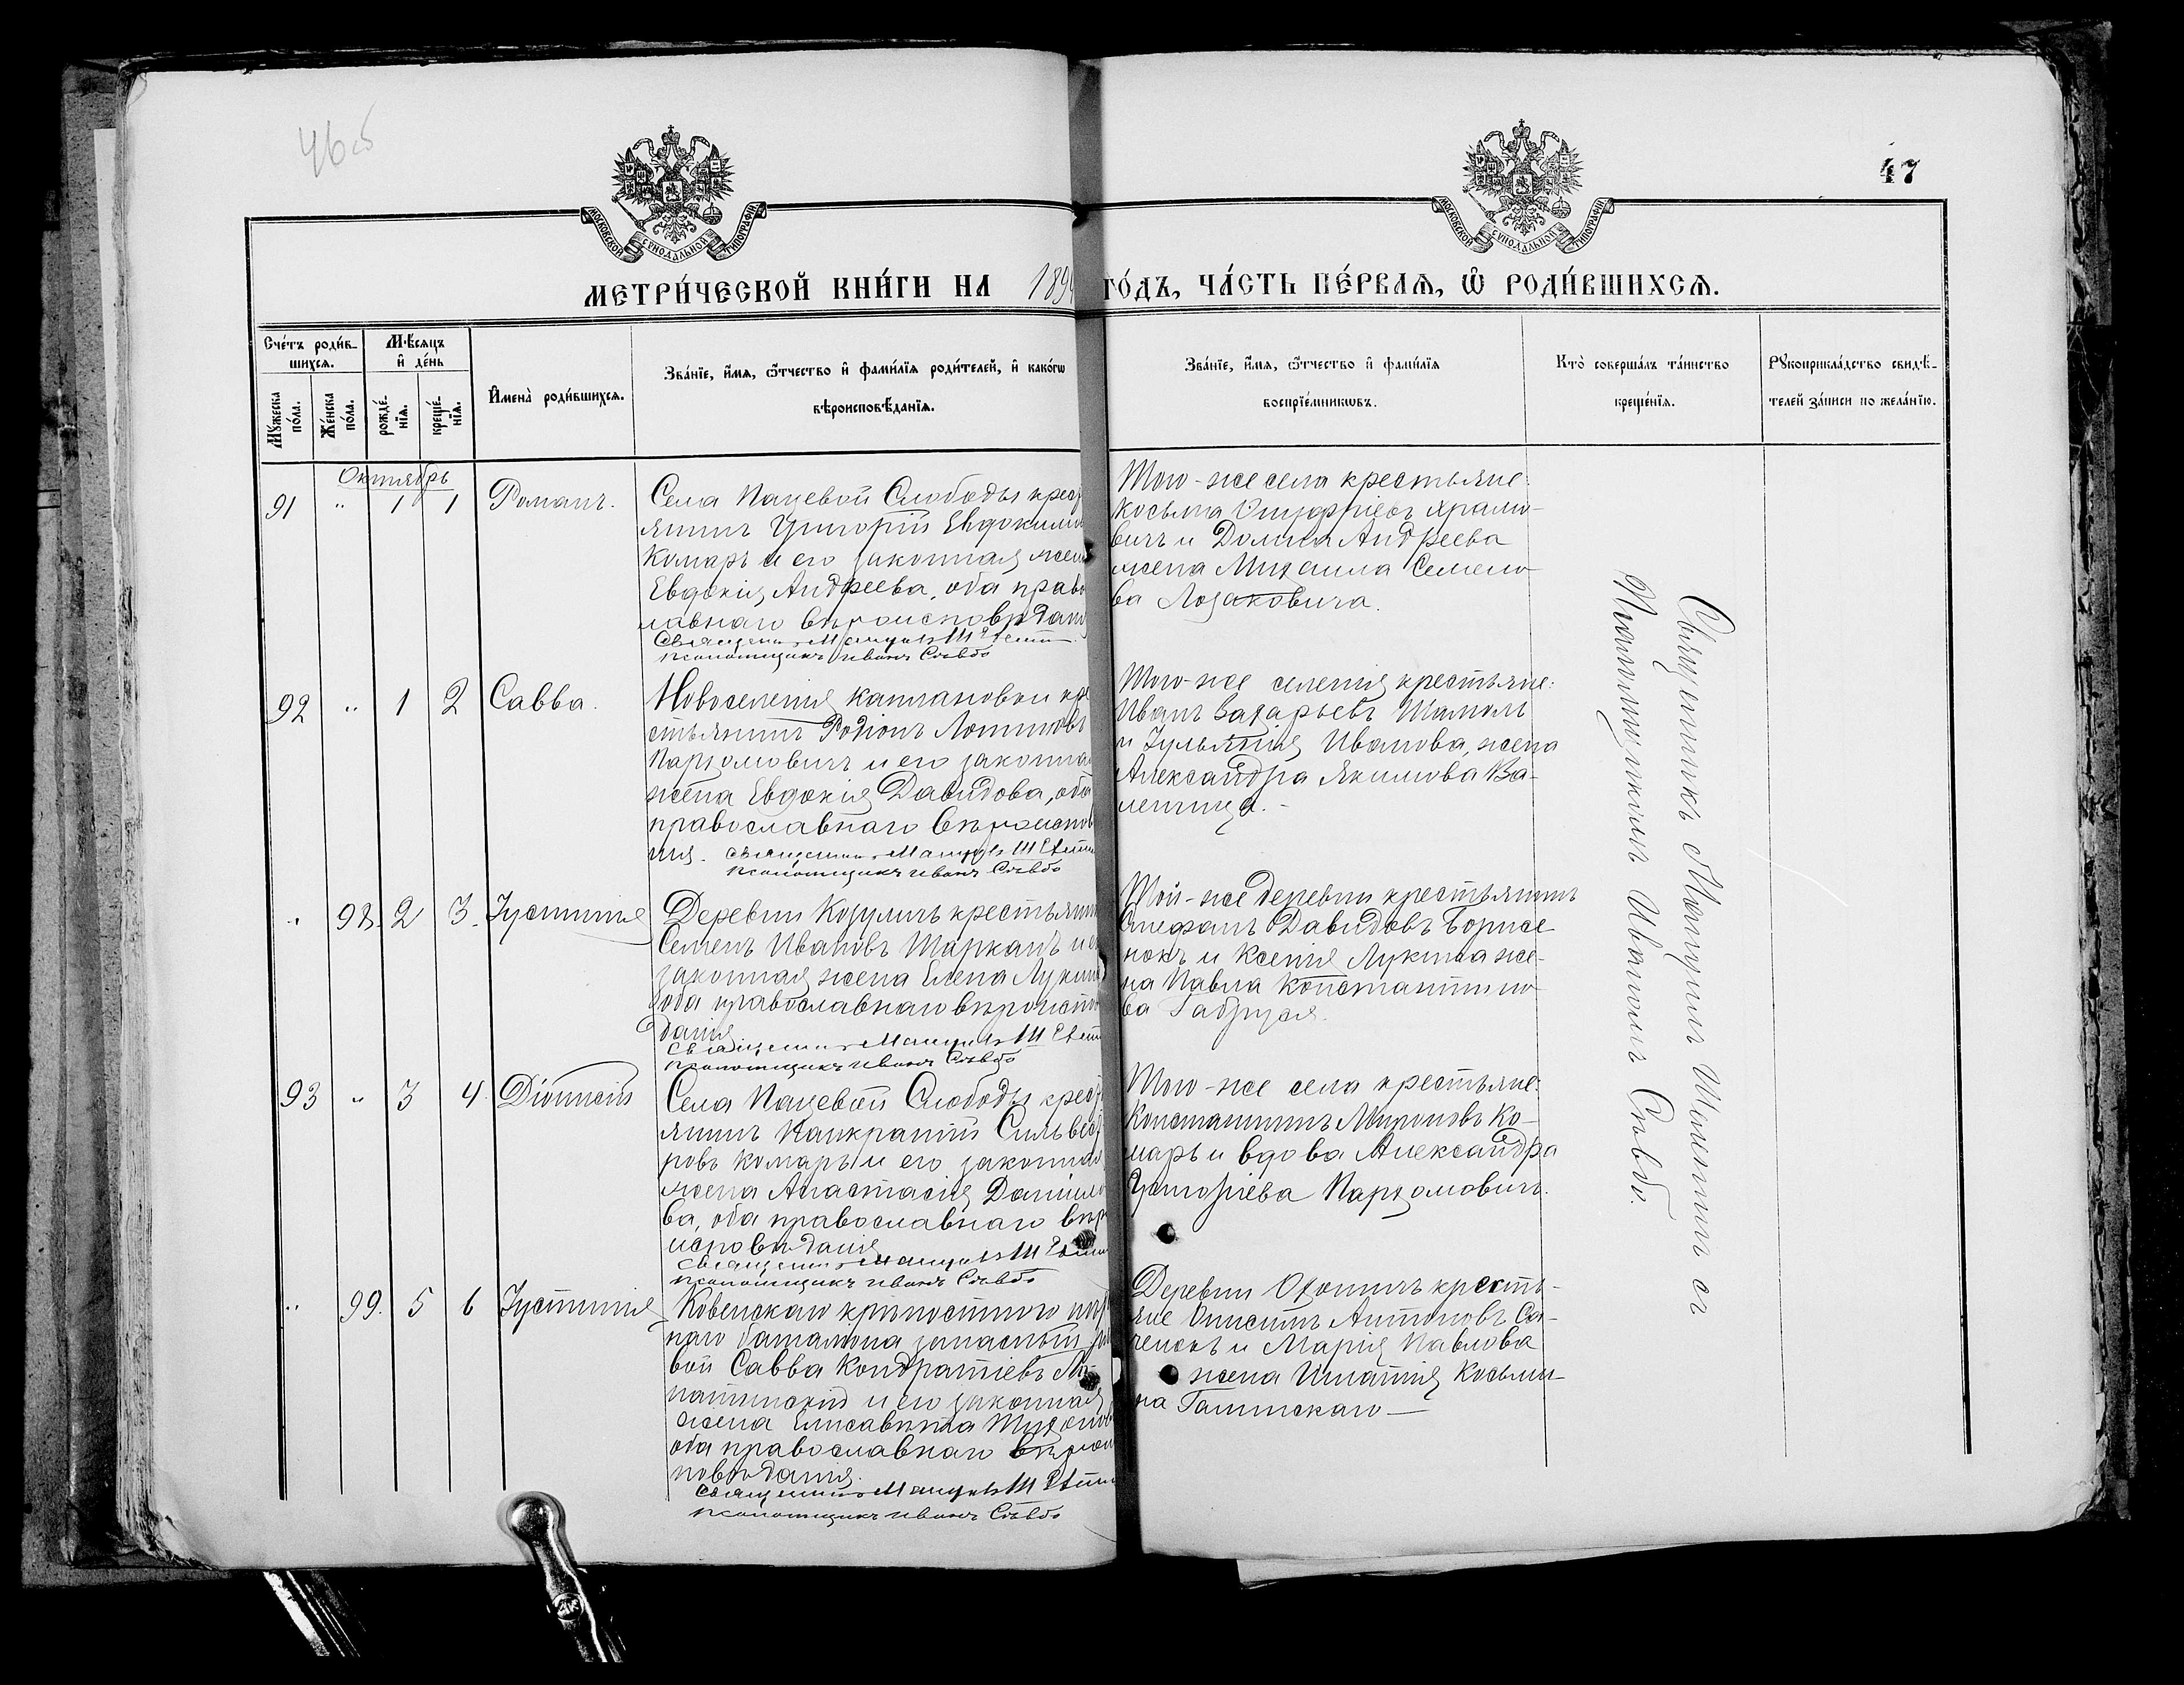 46об
47
МОСКОВСКОЙ СѴНОДАЛЬНОЙ ТИПОГРАФІИ
МОСКОВСКОЙ СѴНОДАЛЬНОЙ ТИПОГРАФІИ
МЕТРИ́ЧЕСКОЙ КНИ́ГИ НА 189
ГО́ДЪ, ЧА́СТЬ ПЕ́РВАѦ, Ѡ҆ РОДИ́ВШИХСѦ.
Сче́тъ роди́в-
шихсѧ.
Мꙋ́жеска по́ла.
Же́нска по́ла.
Мѣ́сѧцъ
и҆ де́нь
рожде́-
нїѧ.
креще́-
нїѧ.
И҆мена̀ роди́вшихсѧ.
Зва́нїе, и҆́мѧ, ѻ҆́тчество и҆ фами́лїѧ роди́телей, и҆ како́гѡ
вѣроисповѣ́данїѧ.
Зва́нїе, и҆́мѧ, ѻ҆́тчество и҆ фами́лїѧ
воспрїе́мникѡвъ.
Кто̀ соверша́лъ та́инство
креще́нїѧ.
Рꙋкоприкла́дство свидѣ́-
телей за́писи по жела́нїю.
Октябрь
91 " 1 1 Романъ.
Села Пацевой Слободы крест
янинъ Григорій Евдокимо
Комаръ и его законная жена
Евдокія Андреева, оба право
лавнаго вѣроисповѣдан
Священникъ Мануилъ
псаломщикъ Иванъ Словбо
Того-же села крестьяне:
Косьма Онуфріевъ Храмо-
вичъ и Домна Андреева
жена Михаила Семено-
ва Лозаковича.
92 " 1 2 Савва.
Новоселенія Каплановки кре
стьянинъ Родіонъ Логиновъ
Пархомовичъ и его законна
жена Евдокія Давидова, оба
православнаго вѣроиспов
нія. Священникъ Мануилъ
псаломщикъ Иванъ Словбо
Того-же селенія крестьяне:
Иванъ Захарьевъ Шамоль
и Іульянія Иванова, жена
Александра Якимова Ва-
ленища.-
" 98. 2 3. Іустинія
Деревни Козуличъ крестьянин
Семенъ Ивановъ Шарканъ и е
законная жена Елена Лукин
оба православнаго вѣроиспо
данія
Священникъ Мануилъ
псаломщикъ Иванъ Словбо
Той-же деревни крестьянинъ
Стефанъ Давидовъ Борисе
нокъ и Ксенія Лукина же-
на Павла Константино-
ва Габруся.
93 " 3 4 Діонисій
Села Пацевой Слободы крест
янинъ Панкратій Сильвест
ровъ Комаръ и его законна
жена Анастасія Даніило
ва, оба православнаго вѣр
исповѣданія
Священникъ Мануилъ
псаломщикъ Иванъ Словбо
Того-же села крестьяне:
Константинъ Мироновъ Ко-
маръ и вдова Александра
Григоріева Пархомовичъ.
" 99. 5 6 Іустинія
Ковенскаго крѣпостного
наго баталіона запасный
вой Савва Кондратіевъ
и его законная
жена Елисавета Тихонов
оба православнаго вѣрои
повѣданія.
Священникъ Мануилъ
псаломщикъ Иванъ Словбо
Деревни Охотичъ кресть-
яне Онисимъ Антоновъ Са-
ченокъ и Марія Павлова
жена Игнатія Косьми-
на Галинскаго—
Священникъ Мануилъ съ
Псаломщикомъ Иваномъ Словбо.